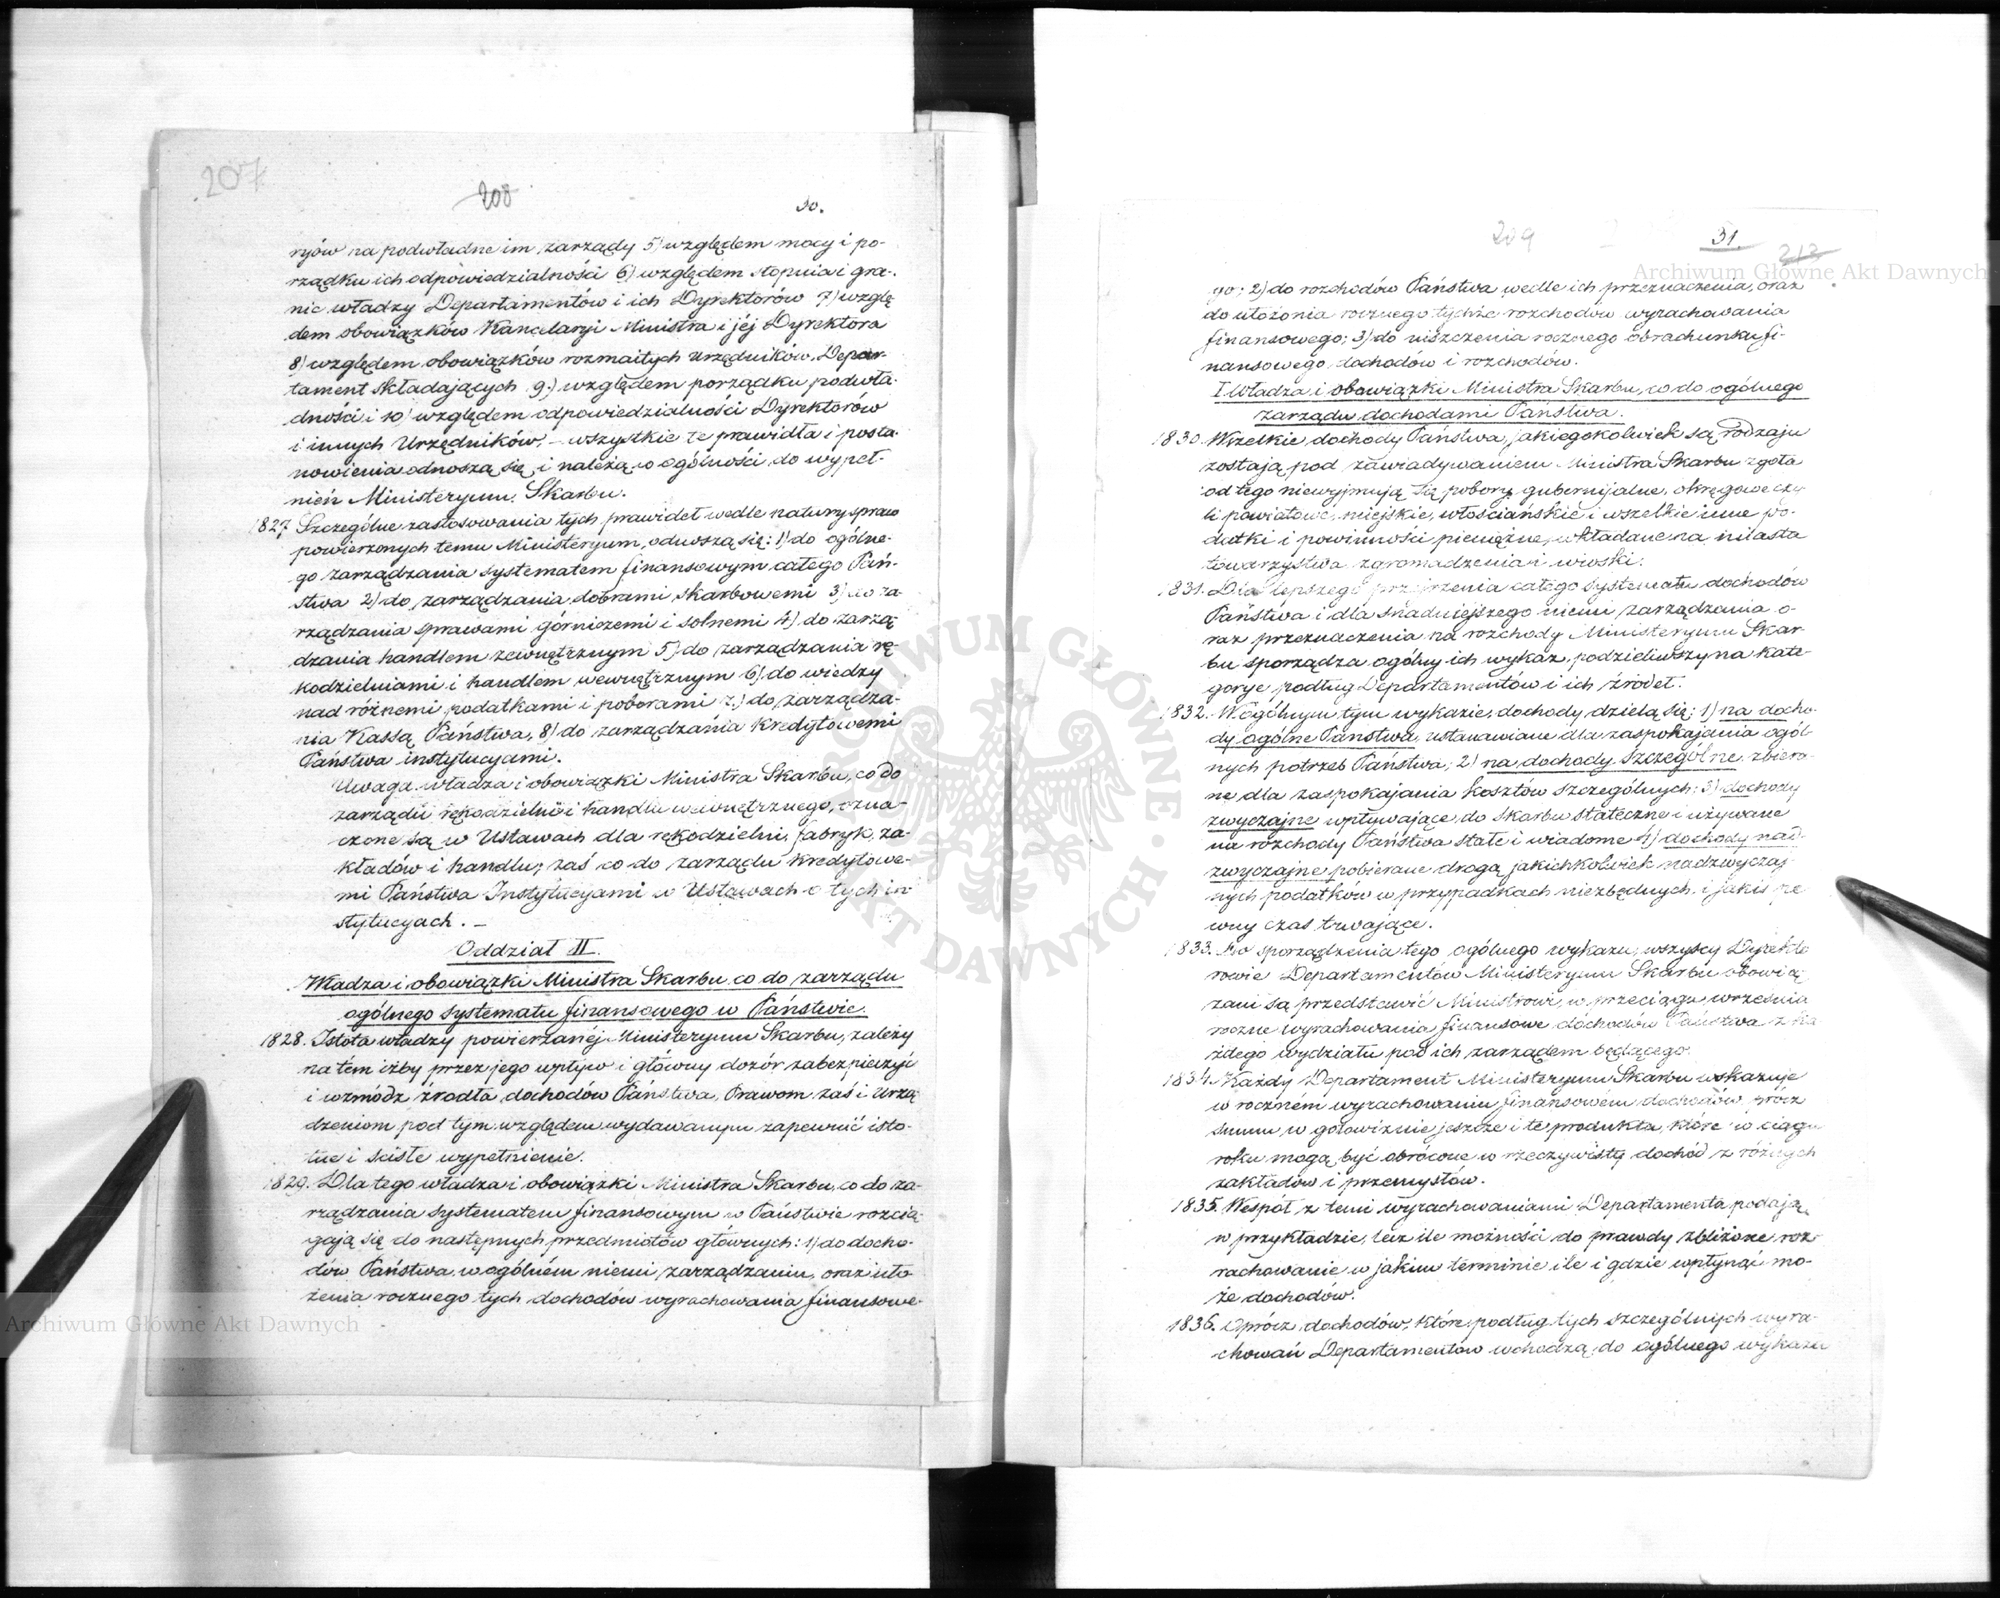 207
208
30.
ryów na podwładne im zarządy 5) względem mocy i po-
rządku ich odpowiedzialności 6) względem stopnia i gra-
nic władzy Departamentów i ich Dyrektorów 7) wzglę
dem obowiązków Kancelaryi Ministra i jéj Dyrektora
8) względem obowiązków rozmaitych urzędników, Depar-
tament składających 9.) względem porządku podwła-
dności i 10) względem odpowiedzialności Dyrektorów
i innych Urzędników, – wszystkie te prawidła i posta-
nowienia odnoszą się i należą w ogólności do wypeł-
nień Ministeryum Skarbu.
1827 Szczególne zastosowania tych prawideł wedle natury spraw
powierzonych temu Ministeryum, odnoszą się: 1) do ogólne-
go zarządzania systematem finansowym całego Pań-
stwa 2) do zarządzania dobrami skarbowemi 3) do za-
rządzania sprawami górniczemi i solnemi 4) do zarzą-
dzania handlem zewnętrznym 5) do zarządzania rę-
kodzielniami i handlem wewnętrznym 6) do wiedzy
nad różnemi podatkami i poborami 7.) do zarządza-
nia Kassą Państwa, 8) do zarządzania Kredytowemi
Państwa instytucyami.
Uwaga. władza i obowiązki Ministra Skarbu, co do
zarządu rękodzielni i handlu wewnętrznego, ozna-
czone są w Ustawach dla rękodzielni, fabryk, za-
kładów i handlu; zaś co do zarządu Kredytowe-
mi Państwa Instytucyami w Ustawach o tych in
stytucyach. –
Oddział II.
Władza i obowiązki Ministra Skarbu co do zarządu
ogólnego systematu finansowego w Państwie.
1828. Istota władzy powierzanéj Ministeryum Skarbu, zależy
na tém iżby przez jego wpływ i główny dozór zabezpieczyć
i wzmódz źródła dochodów Państwa, Prawom zaś i Urzą
dzeniom pod tym względem wydawanym zapewnić isto-
tne i ścisłe wypełnienie.
1829. Dla tego władza i obowiązki Ministra Skarbu, co do za-
rządzania systematem finansowym w Państwie rozcią
gają się do następnych przedmiotów głównych: 1) do docho-
dów Państwa w ogólném niemi zarządzaniu, oraz uło
żenia rocznego tych dochodów wyrachowania finansowe-
209
31.
213
go; 2) do rozchodów Państwa wedle ich przeznaczenia, oraz
do ułożenia rocznego tychże rozchodów wyrachowania
finansowego; 3) do uiszczenia rocznego obrachunku fi-
nansowego dochodów i rozchodów.
I. Władza i obowiązki Ministra Skarbu, co do ogólnego
zarządu dochodami Państwa.
1830. Wszelkie dochody Państwa, jakiegokolwiek są rodzaju
zostają pod zawiadywaniem Ministra Skarbu zgoła
od tego niewyjmują się pobory gubernijalne, okręgowe czy
li powiatowe, miejskie, włościańskie i wszelkie inne po-
datki i powinności pieniężne, wkładane na miasta
towarzystwa zgromadzenia i wioski.
1831. Dla lepszego przejrzenia całego systematu dochodów
Państwa i dla snadniejszego niemi zarządzania o-
raz przeznaczenia na rozchody Ministeryum Skar-
bu sporządza ogólny ich wykaz, podzieliwszy na kate-
gorye podług Departamentów i ich źródeł.
1832. W ogólnym tym wykazie, dochody dzielą się: 1) na docho-
dy ogólne Państwa, ustanawiane dla zaspokajania ogól-
nych potrzeb Państwa; 2) na dochody szczególne zbiera-
ne dla zaspokajania kosztów szczególnych; 3) dochody
zwyczajne wpływające do skarbu statecznie i używane
na rozchody Państwa stałe i wiadome 4) dochody nad-
zwyczajne pobierane drogą jakichkolwiek nadzwyczaj-
nych podatków w przypadkach niezbędnych i jakiś pe
wny czas trwające.
1833. Do sporządzenia tego ogólnego wykazu, wszyscy Dyrekto
rowie Departamentów Ministeryum Skarbu obowią
zani są przedstawić Ministrowi, w przeciągu września
roczne wyrachowania finansowe dochodów Państwa z ka
żdego wydziału pod ich zarządem będącego.
1834. Każdy Departament Ministeryum Skarbu wskazuje
w roczném wyrachowaniu finansowém dochodów, prócz
summ w gotowiznie jeszcze i te produkta, które w ciągu
roku mogą być obrócone w rzeczywisty dochód z różnych
zakładów i przemysłów.
1835. Wespół z temi wyrachowaniami Departamenta podają,
w przykładzie, lecz ile możności do prawdy zbliżone roz-
rachowanie w jakim terminie ile i gdzie wpłynąć mo-
że dochodów.
1836. Oprócz dochodów, które podług tych szczególnych wyra-
chowań Departamentów wchodzą do ogólnego wykazu
ARCHIWUM GŁÓWNE AKT DAWNYCH
Archiwum Główne Akt Dawnych
Archiwum Główne Akt Dawnych